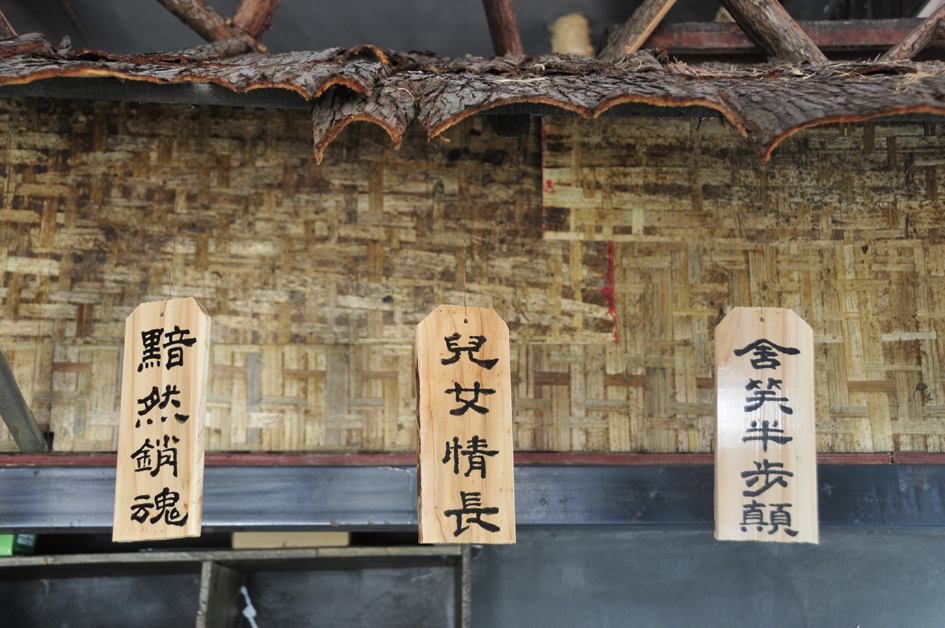 黯然銷魂
兒女情長
含笑半步顛